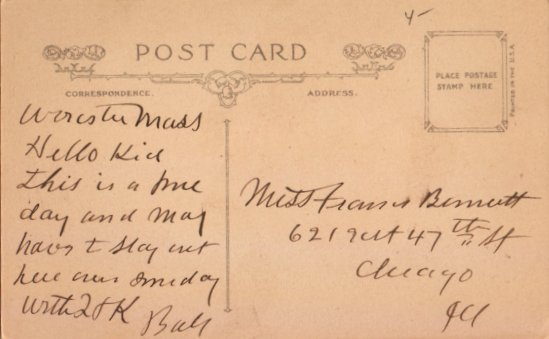 4-
POST CARD
CORRESPONDENCE.
ADDRESS.
PLACE POSTAGE
STAMP HERE
PRINTED IN THE U.S.A.
Worcster Mass
Hello Kid
this is a fine
day and may
have t stay out
here over Sunday
with
Miss Frances Bennett
621 47th St
Chicago
Ill